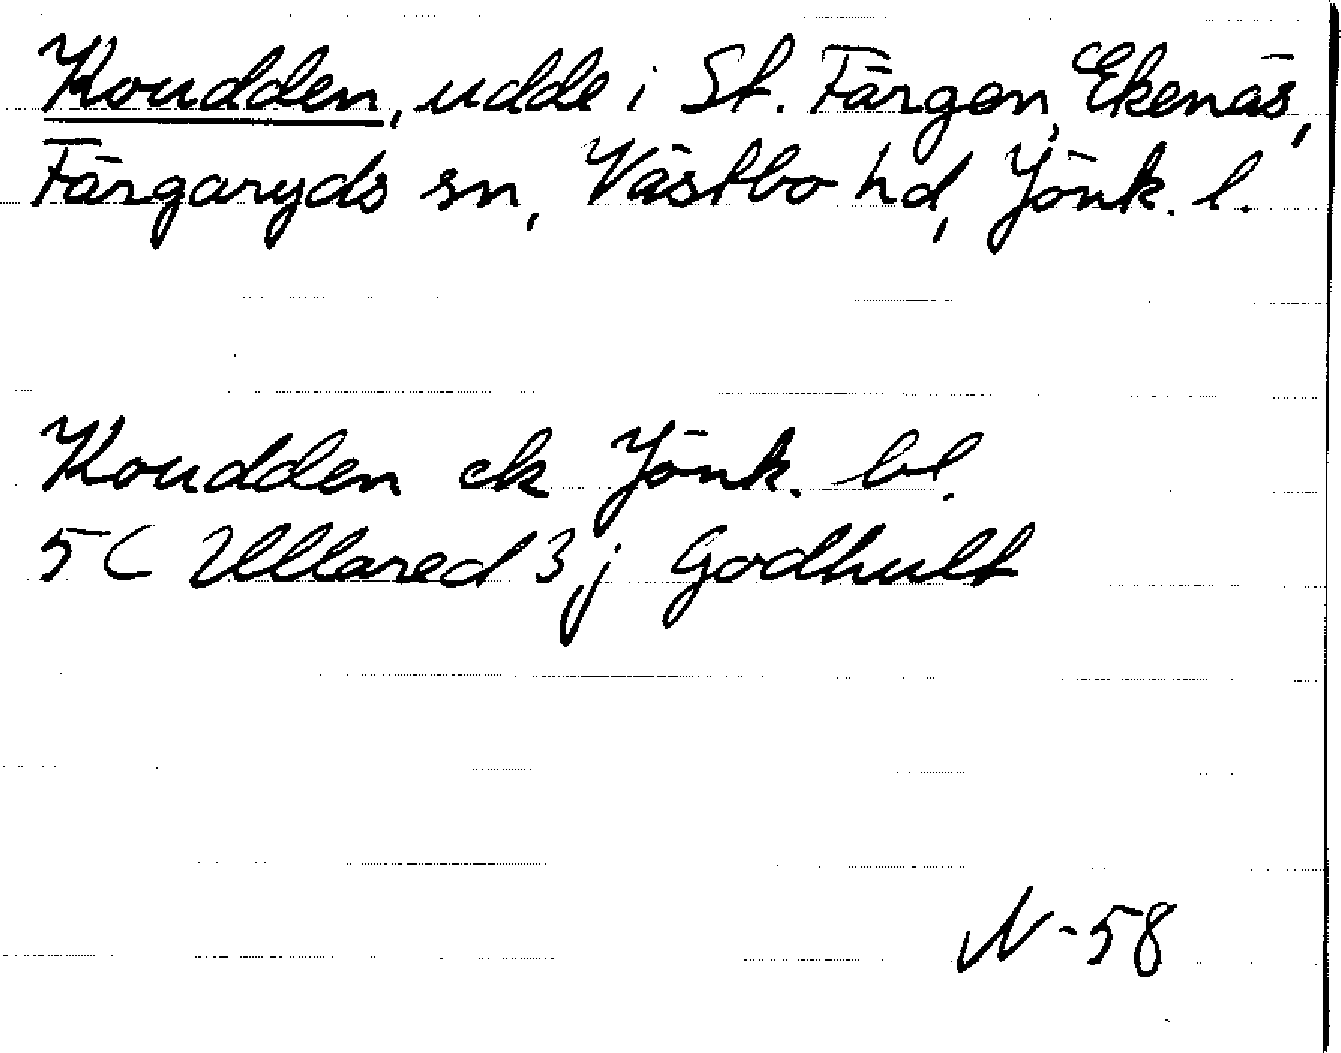 Koudden, udde i St. Färgen, Ekenäs,
Färgaryds sn, Västbo hd, Jönk. l.
Koudden ek Jönk. bl.
5C Ullared 3 j Godhult
N-58